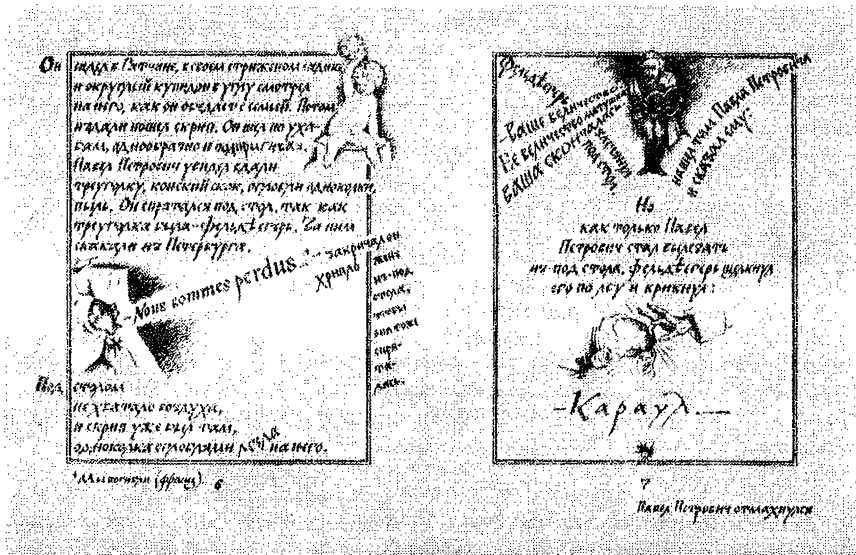 Он сидел в Гатчине, в своем стриженом садике,
и округлый купидон в углу смотрел
на него, как он обедает с семьей. Потом
издали пошел скрип. Он шел по уха-
бам, однообразно и
Павел Петрович увидел вдали
треуголку, конский скок, оглобли одноколки,
пыль. Он спрятался под стол, так как
треуголка была – фельдъегерь. За ним
скакали из Петербурга.
– Nous sommes perdus... – закричал он
хрипло
жене
из-под
стола,
чтобы
она тоже
спря-
та-
лась.
Под столом
не хватало воздуха,
и скрип уже был там,
одноколка оглоблями лезла на него.
Мы погибли (франц.).
6
Фельдъегерь
нашел там Павла Петровича
и сказал ему:
– Ваше величество.
Ее величество матушка
ваша скончалась.
заглянул
под стол
Но
как только Павел
Петрович стал вылезать
из-под стола, фельдъегерь щелкнул
его по лбу и крикнул:
– Караул.
7
Павел Петрович отмахнулся